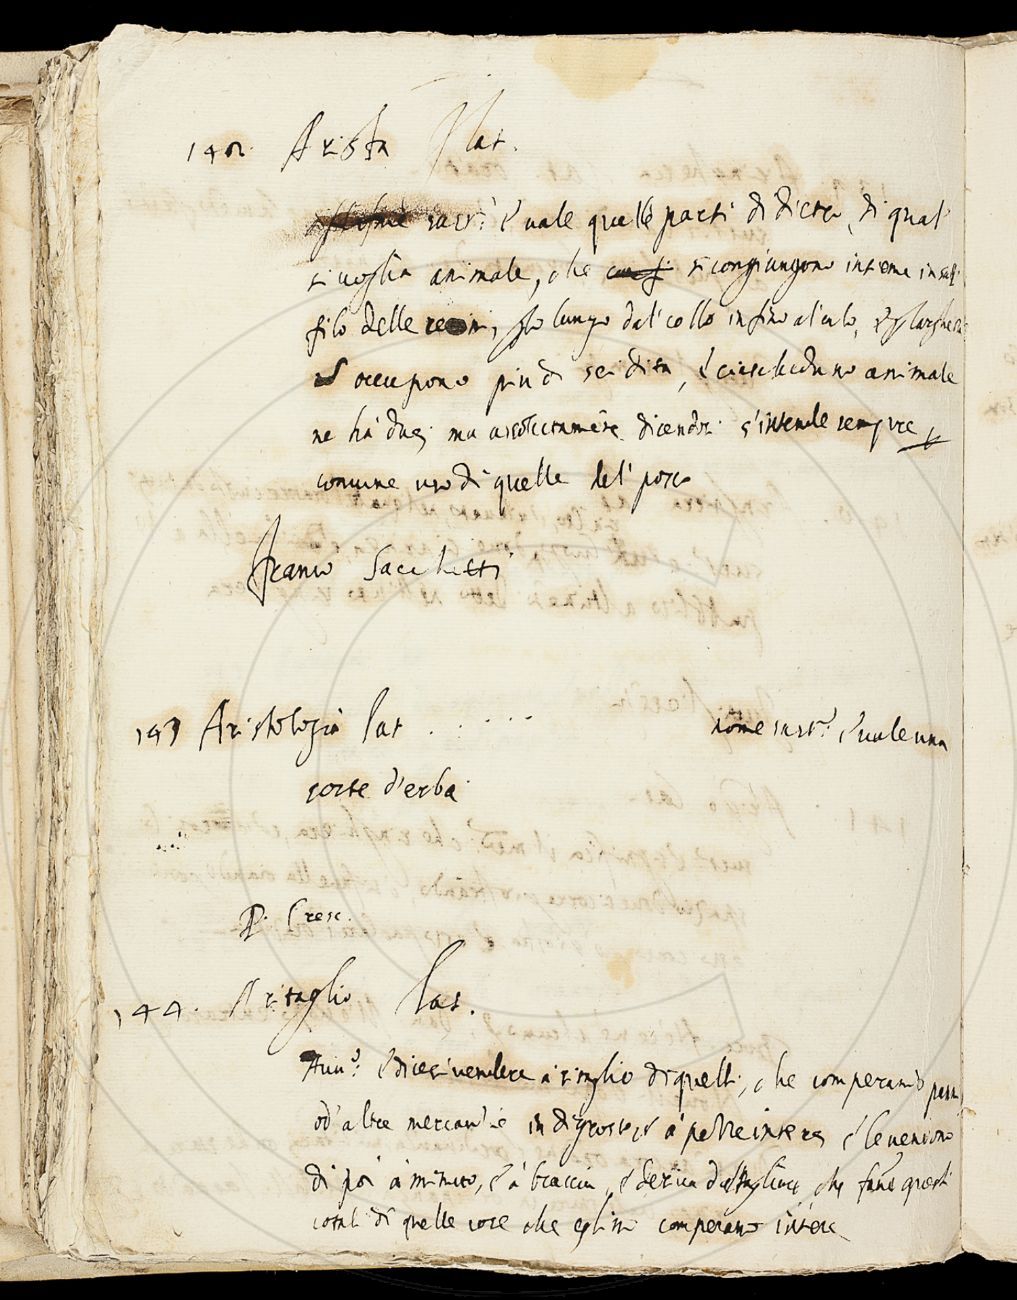 142. Arista lat.
sust.º è vale quelle parti di dietro, di qual
si voglia animale, che si congiungono insieme in sul
filo delle reni, p lo lungo dal collo infino al culo, e p larghezza
occupono più di sei dita, e ciascheduno animale
ne hà due, ma assolutamẽte dicendosi s'intende sempre p
comune uso di quelle del porco
Franco Sacchetti
143 Aristologia lat . . . . . nome sust.º è vale una
sorte d'erba
P. Cresc.
144. Aritaglio lat.
Auu.º è dicesi vendere à ritaglio di quelli, che comperano panni
od' altre mercanzie in digrosso, à pezze intere, e le vendono
di poi à minuto, è à braccia, e deriva da tagliare, che fanno questi
cotali di quelle cose che eglino comperano intere